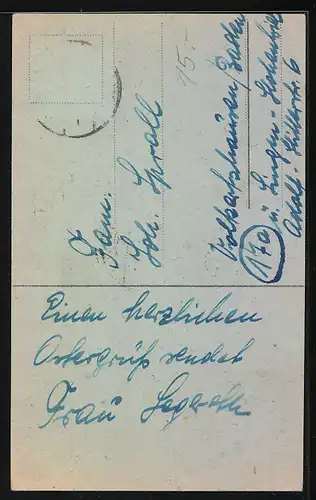 Fam.
Joh. Sproll
Volkertshausen/Baden
(17a) ü. Singen-Hohentwiel
Adolf-Hitlerstr. 6
Einen herzlichen
Ostergruß sendet
Frau
15.-